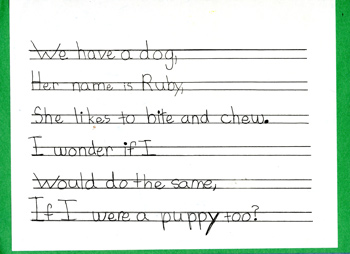 We have a dog,
Her name is Ruby,
She likes to bite and chew.
I wonder if I
Would do the same,
If I were a puppy too?